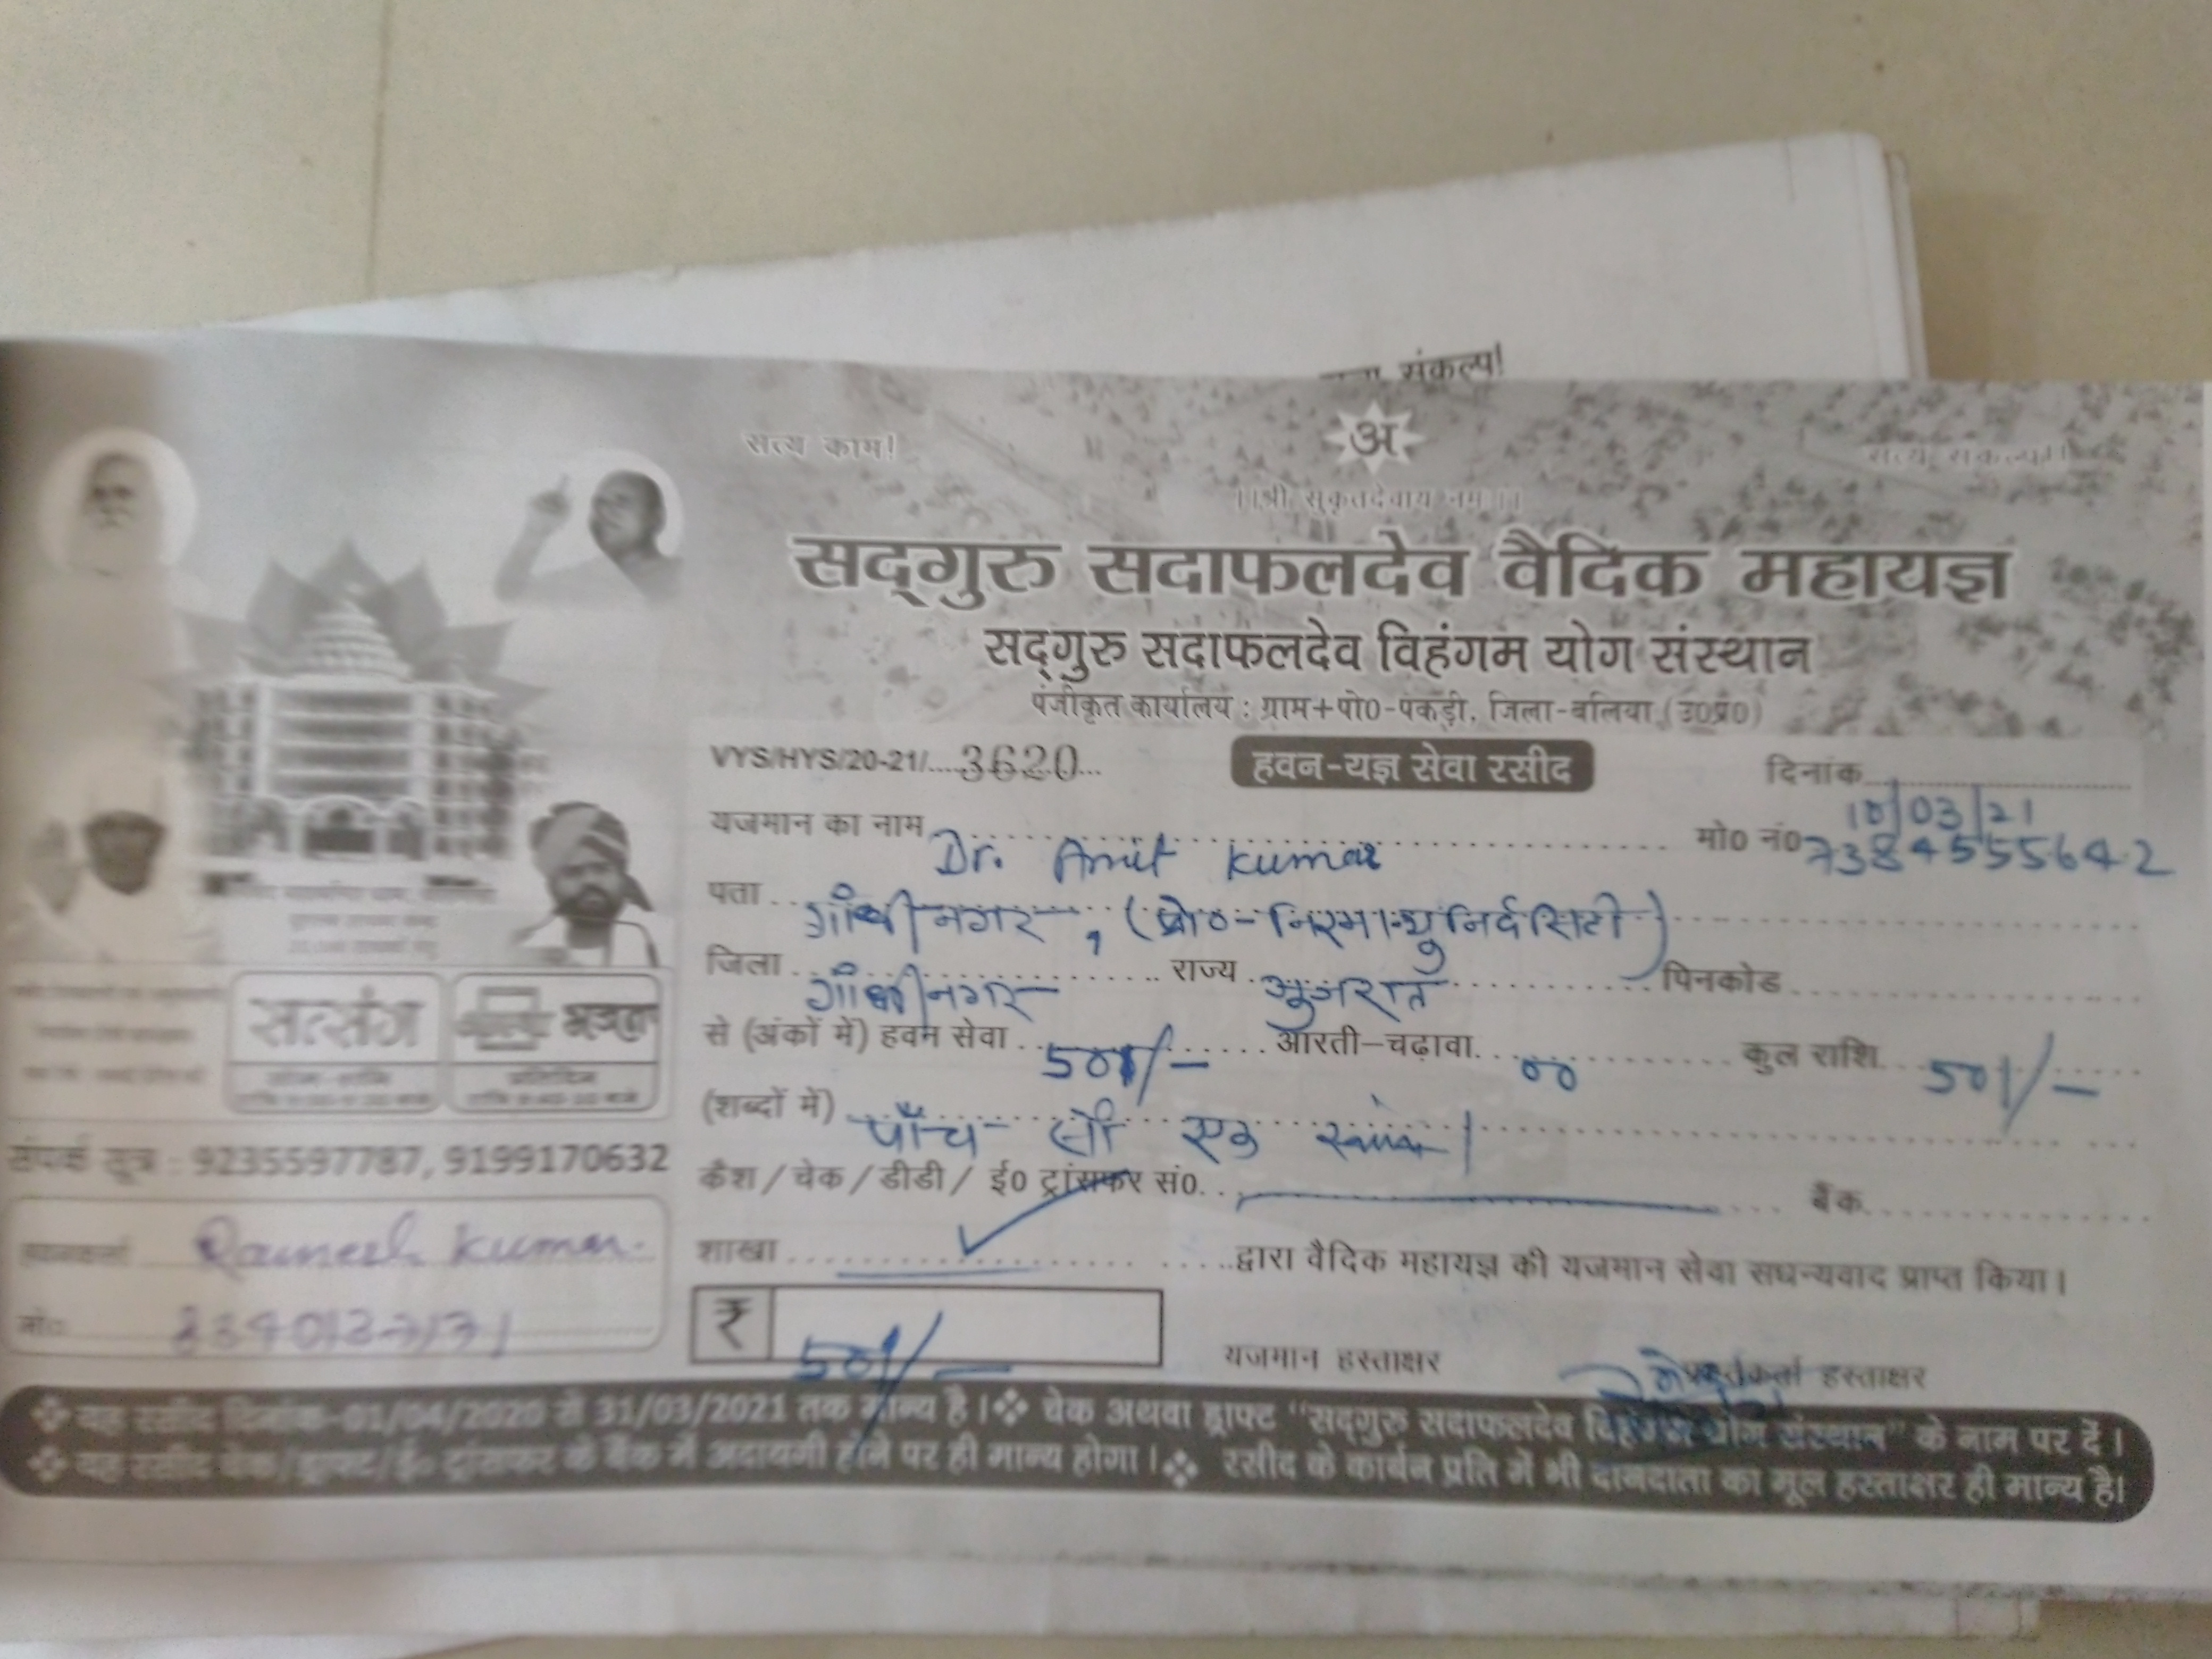 संकल्प!
सत्य काम!
अ
सत्य संकल्प!!
।।श्री सुकृतदेवाय नमः।।
सद्गुरु सदाफलदेव वैदिक महायज्ञ
सद्गुरु सदाफलदेव विहंगम योग संस्थान
पंजीकृत कार्यालय : ग्राम+पो0-पकड़ी, जिला-बलिया (उ0प्र0)
VYS/HYS/20-21/....3620... हवन-यज्ञ सेवा रसीद दिनांक 10/03/21
यजमान का नाम Dr. Amit Kumar मो0 नं0
पता गाँधीनगर, (प्रो०-निरमा युनिर्वसिटी)
जिला गाँधीनगर राज्य गुजरात पिनकोड
से (अंकों में) हवन सेवा 501/- आरती-चढ़ावा 00 कुल राशि 501/-
(शब्दों में) पाँच सौ एक
कैश / चेक / डीडी / ई0 ट्रांसफर सं0. बैंक
शाखा द्वारा वैदिक महायज्ञ की यजमान सेवा सधन्यवाद प्राप्त किया।
₹ 501/-
यजमान हस्ताक्षर हस्ताक्षर
सत्संग
प्रतिदिन
संपर्क सूत्र : 9235597787, 9199170632
Kumar
मो०
❖ यह रसीद दिनांक-01/04/2020 से 31/03/2021 तक मान्य है।❖ चेक अथवा ड्राफ्ट "सद्गुरु सदाफलदेव विहंगम योग संस्थान" के नाम पर दें।
❖ यह रसीद चेक/ड्राफ्ट/ई० ट्रांसफर के बैंक में अदायगी होने पर ही मान्य होगा।❖ रसीद के कार्बन प्रति में भी दानदाता का मूल हस्ताक्षर ही मान्य है।